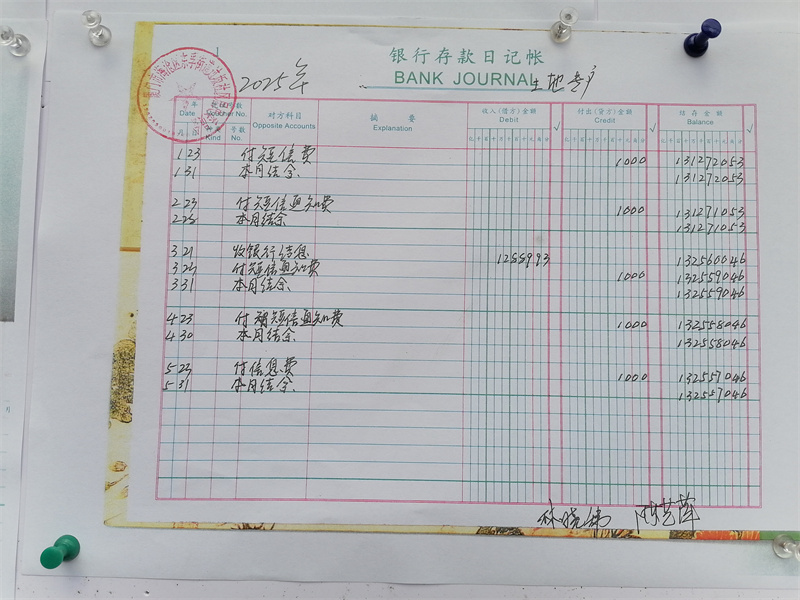 银行存款日记帐
2025年
BANK JOURNAL 土地专户
年 凭证号数 对方科目 摘要 收入(借方)金额 √ 付出(贷方)金额 √ 结存金额 √
Date Voucher No. Opposite Accounts Explanation Debit Credit Balance
月 日 Kind 号数 No.
1 23 付短信费 1000 131272053
1 31 本月结余 131272053
2 23 付短信通知费 1000 131271053
2 28 本月结余 131271053
3 21 收银行结息 128993 132560046
3 24 付短信通知费 1000 132559046
3 31 本月结余 132559046
4 23 付短信通知费 1000 132558046
4 30 本月结余 132558046
5 23 付信息费 1000 132557046
5 31 本月结余 132557046
林晓 陈艺